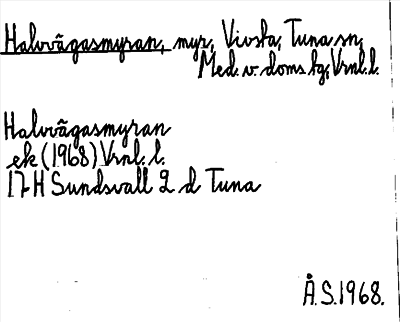 Halvvägasmyran, myr, Vivsta, Tuna sn,
Med. v. doms. tg, Vrnl. l.
Halvvägasmyran
ek (1968) Vrnl. l.
17 H Sundsvall 2 d Tuna
Å.S. 1968.